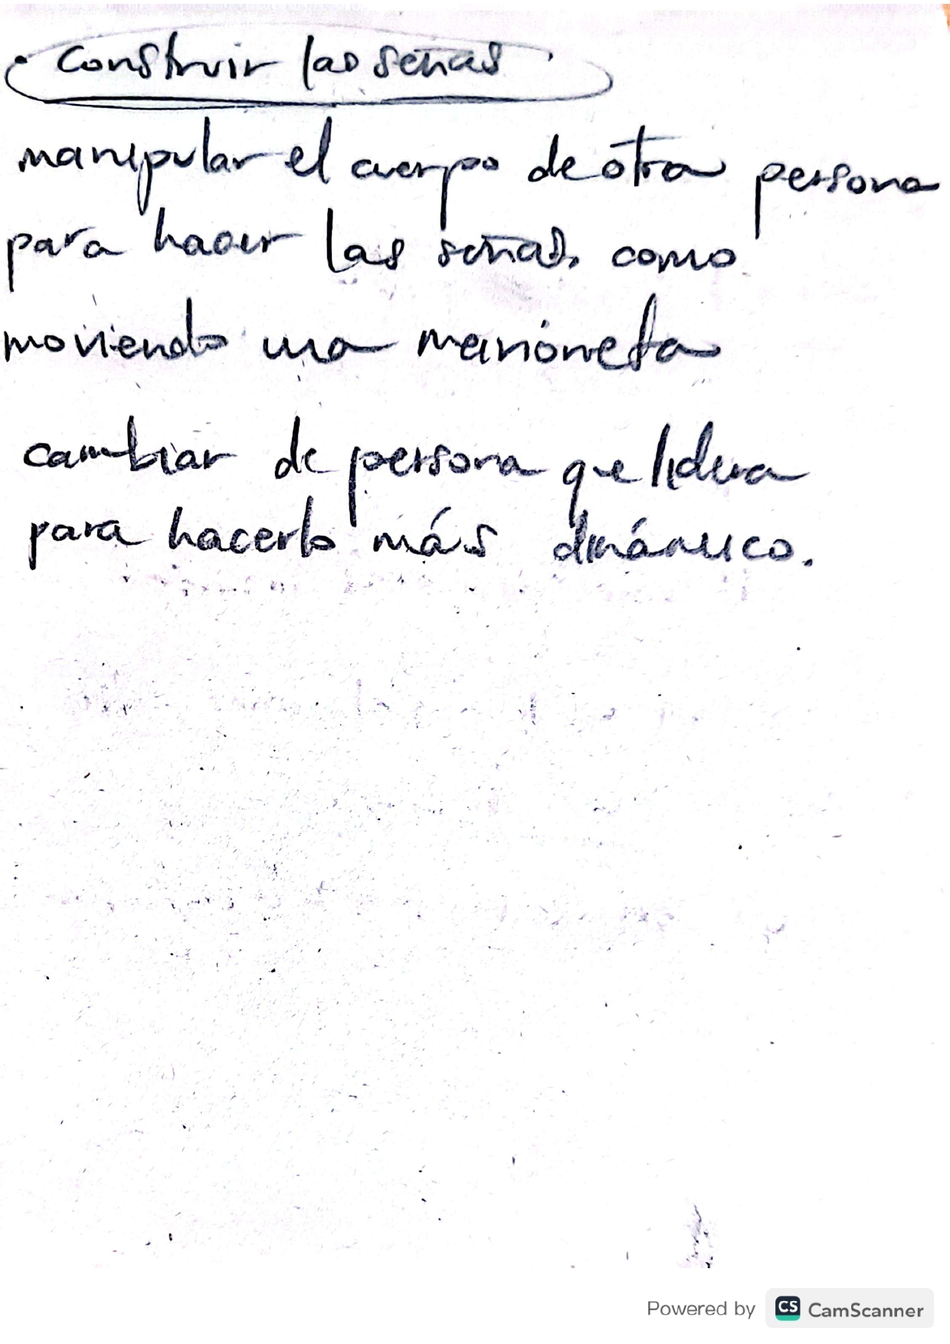 · construir las señas ·
manipular el cuerpo de otra persona
para hacer las señas, como
moviendo una marioneta
cambiar de persona que lidera
para hacerlo más dinámico.
Powered by CS CamScanner